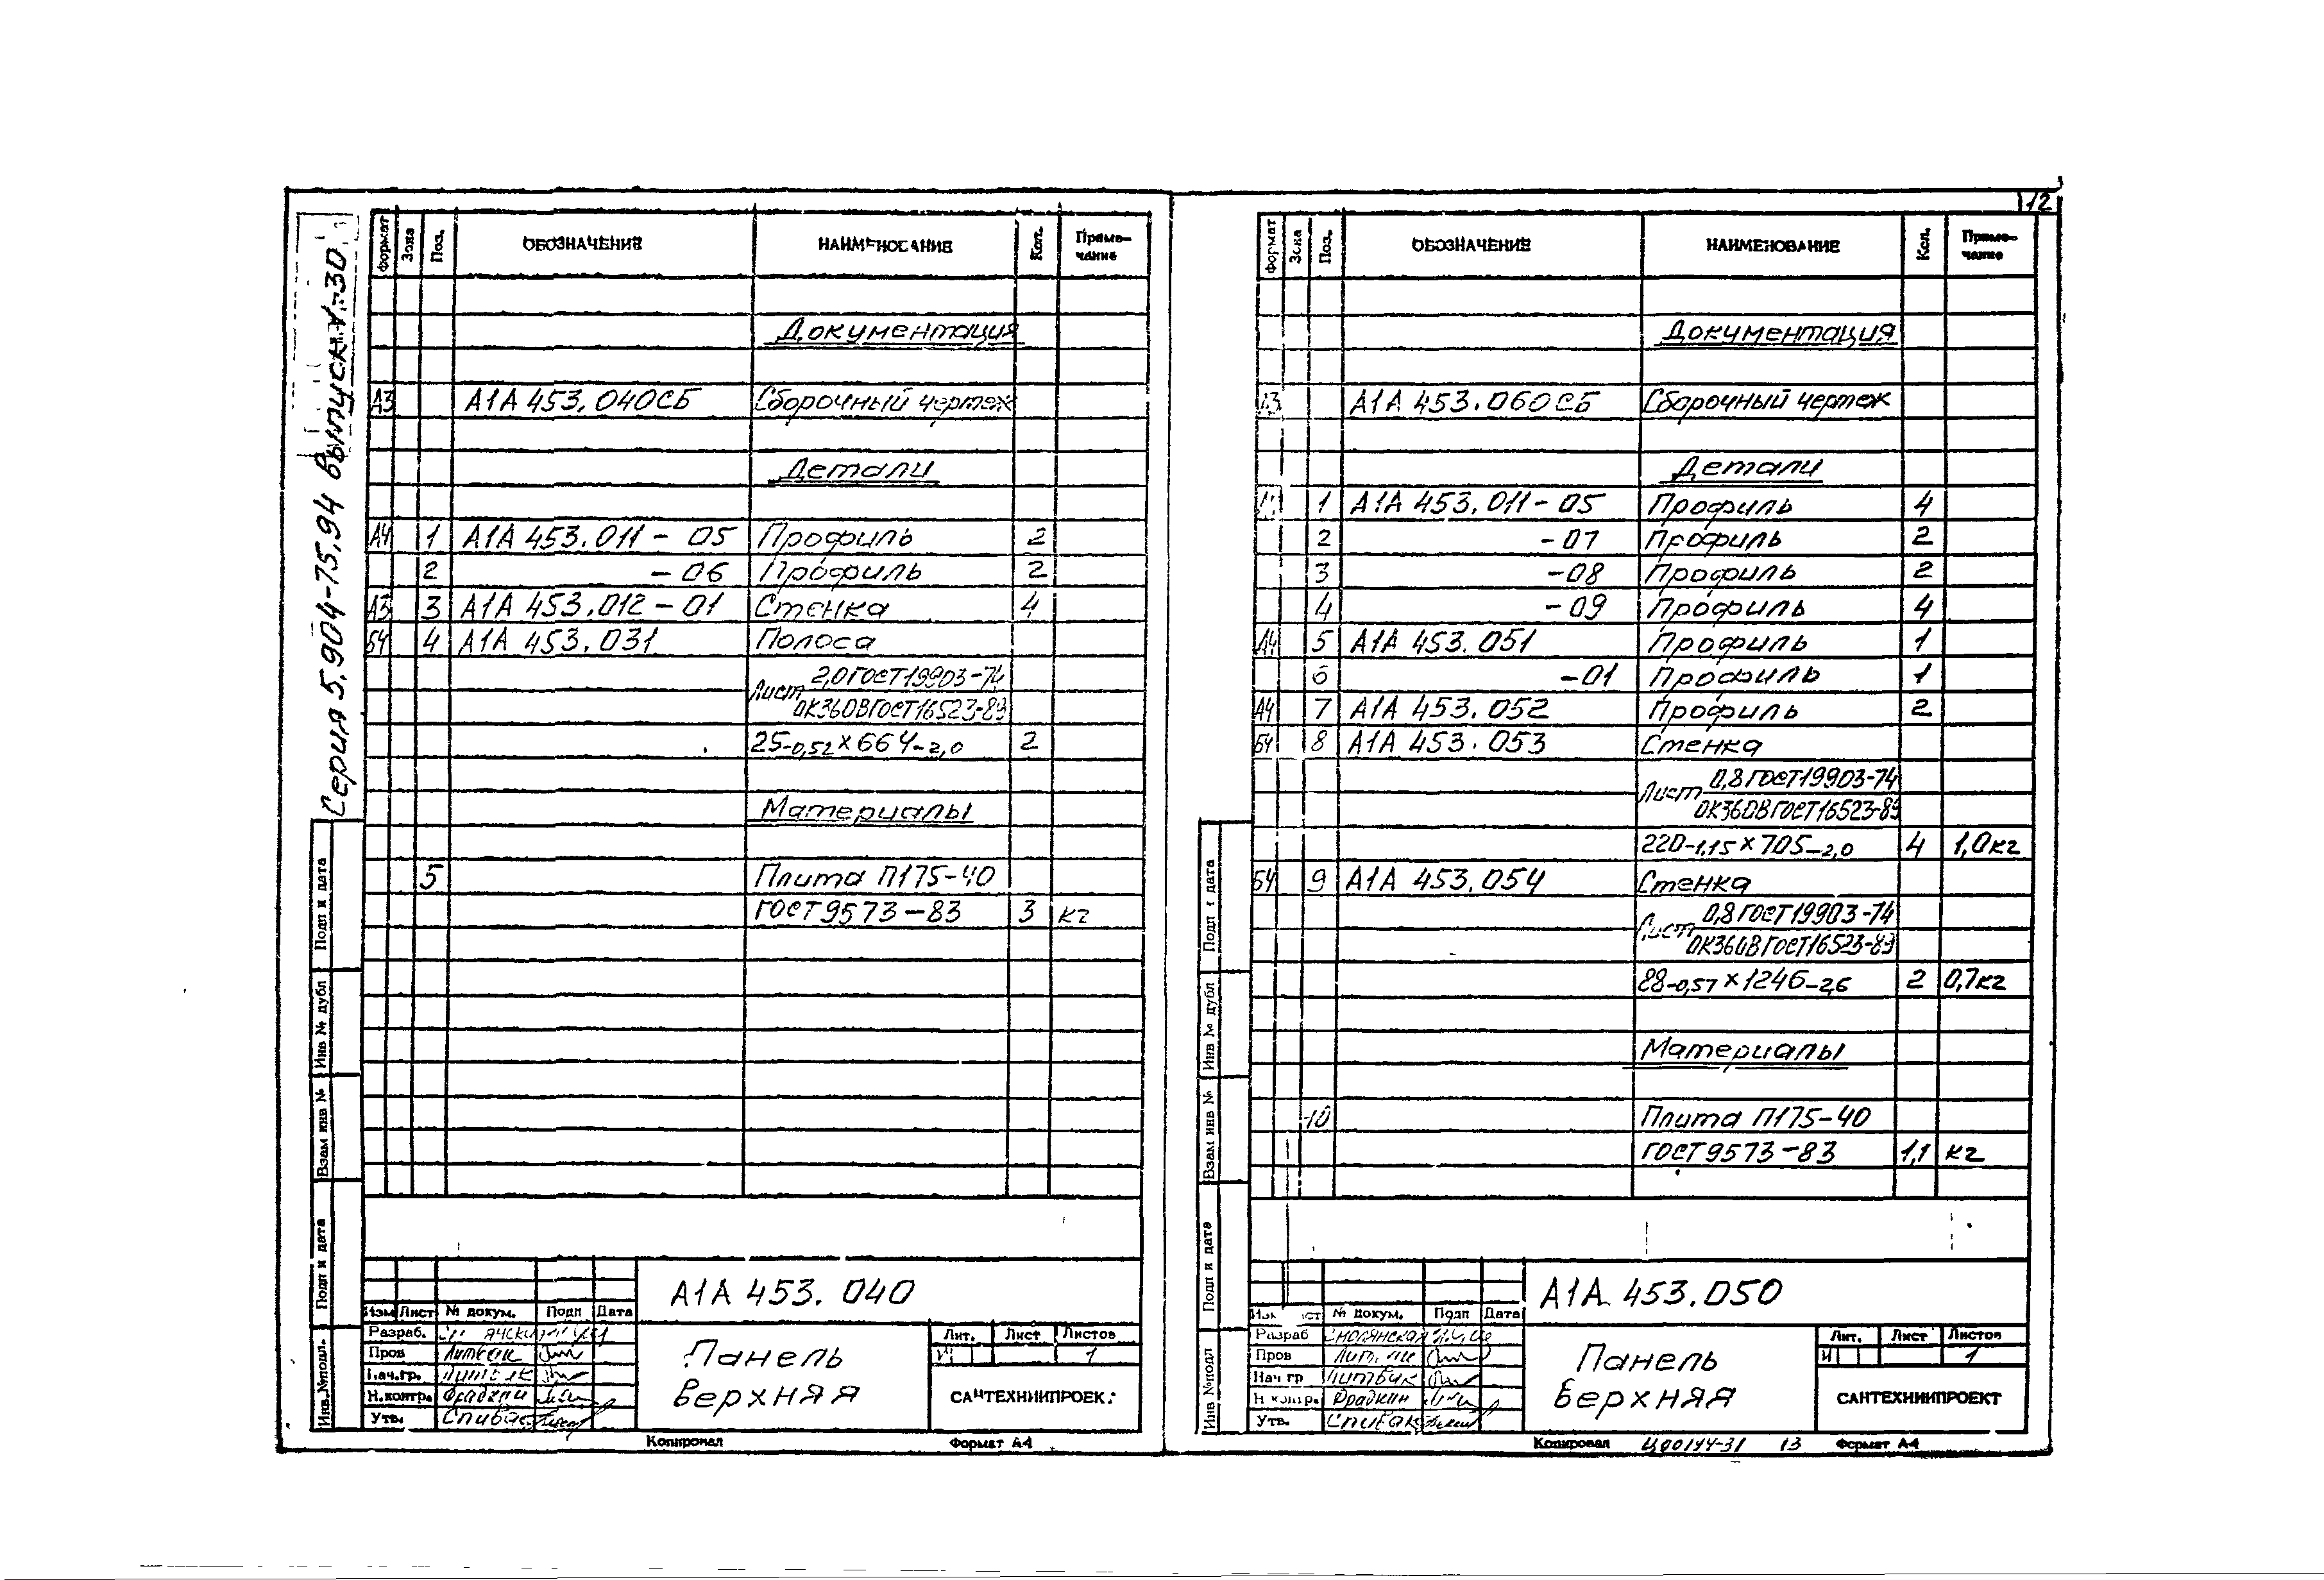 12
Серия 5.904-75.94 Выпуск 1-30
Формат Зона Поз. ОБОЗНАЧЕНИЕ НАИМЕНОВАНИЕ Кол. Приме-
чание
Документация
А3 А1А 453.040СБ Сборочный чертеж
Детали
А4 1 А1А 453.011 - 05 Профиль 2
2 - 06 Профиль 2
А3 3 А1А 453.012 - 01 Стенка 4
БЧ 4 А1А 453.031 Полоса
2,0 ГОСТ 19903-74
Лист
ОК360В ГОСТ 16523-89
25-0,52 х 664-2,0 2
Материалы
5 Плита П175-40
ГОСТ 9573-83 3 кг
А1А 453.040
Изм Лист № докум. Подп Дата
Разраб.
Пров Литвак
Нач.гр. Литвак
Н.контр. Фрадкин
Утв. Спивак
Панель
верхняя
Лит. Лист Листов
И 1
САНТЕХНИИПРОЕКТ
Копировал Формат А4
Подп и дата
Инв № дубл
Взам инв №
Подп и дата
Инв.№подл.
Формат Зона Поз. ОБОЗНАЧЕНИЕ НАИМЕНОВАНИЕ Кол. Приме-
чание
Документация
А3 А1А 453.060СБ Сборочный чертеж
Детали
1 А1А 453.011 - 05 Профиль 4
2 - 07 Профиль 2
3 - 08 Профиль 2
4 - 09 Профиль 4
А4 5 А1А 453.051 Профиль 1
6 - 01 Профиль 1
А4 7 А1А 453.052 Профиль 2
БЧ 8 А1А 453.053 Стенка
0,8 ГОСТ 19903-74
Лист
ОК360В ГОСТ 16523-89
220-1,15 х 705-2,0 4 1,0 кг
БЧ 9 А1А 453.054 Стенка
0,8 ГОСТ 19903-74
Лист
ОК360В ГОСТ 16523-89
88-0,57 х 1246-2,6 2 0,7 кг
Материалы
10 Плита П175-40
ГОСТ 9573-83 1,1 кг
А1А 453.050
№ докум. Подп Дата
Разраб Смолянская
Пров
Нач гр Литвак
Н контр. Фрадкин
Утв. Спивак
Панель
верхняя
Лит. Лист Листов
И 1
САНТЕХНИИПРОЕКТ
Копировал Ц00144-31 13 Формат А4
Подп и дата
Инв № дубл
Взам инв №
Подп и дата
Инв №подл